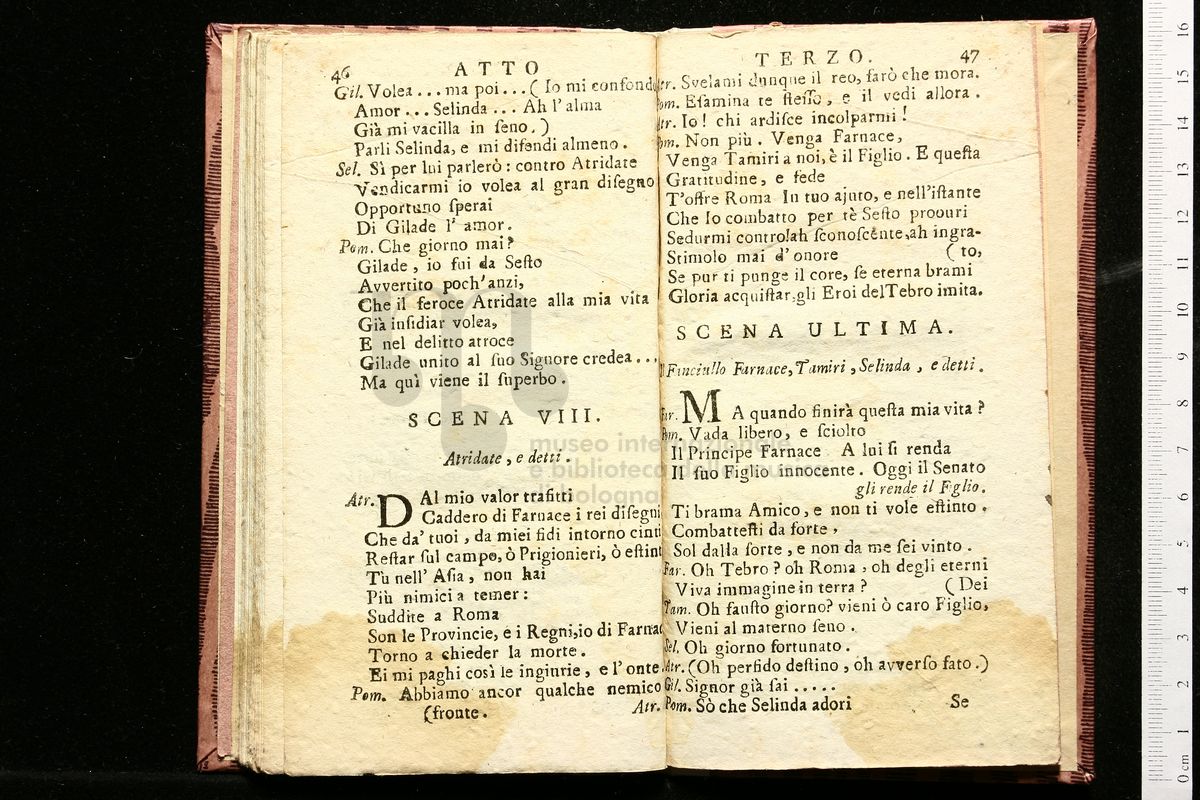 46 ATTO
Gil. Volea ... ma poi ... ( Io mi confond
Amor ... Selinda ... Ah l' alma
Già mi vacilla in ſeno. )
Parli Selinda, e mi difendi almeno.
Sel. Sì per lui parlerò : contro Atridate
Vendicarmi io volea al gran diſegno
Opportuno ſperai
Di Gilade l' amor.
Pom. Che giorno mai?
Gilade, io fui da Seſto
Avvertito poch' anzi,
Che il feroce Atridate alla mia vita
Già inſidiar volea,
E nel delitto atroce
Gilade unito al ſuo Signore credea ...
Ma quì viene il ſuperbo.
SCENA VIII.
Atridate, e detti.
Atr. DAl mio valor trafitti
Caddero di Farnace i rei diſegni
Che da' tuoi, da miei fidi intorno cinti
Reſtar ſul campo, ò Prigionieri, ò eſtint
Tù nell' Aſia, non hai
Più nimici a temer:
Suddite a Roma
Son le Provincie, e i Regni, io di Farnac
Torno a chieder la morte.
Ei mi paghi così le ingiurie, e l' onte.
Pom. Abbiamo ancor qualche nemico
(fronte. Atr.
TERZO. 47
Atr. Svelami dunque il reo, farò che mora.
Pom. Eſamina te ſteſſo, e il vedi allora.
Atr. Io! chi ardiſce incolparmi!
Pom. Non più. Venga Farnace,
Venga Tamiri a noi, è il Figlio. E queſta
Gratitudine, e fede
T'offre Roma In tuo ajuto, e nell'iſtante
Che Io combatto per tè Seſto proouri
Sedurmi contro!ah ſconoſcente,ah ingra-
Stimolo mai d' onore (to,
Se pur ti punge il core, ſe eterna brami
Gloria acquiſtar, gli Eroi delTebro imita.
SCENA ULTIMA.
Il Finciullo Farnace, Tamiri, Selinda, e detti.
Far. MA quando finirà queſta mia vita?
Pom. Vada libero, e ſciolto
Il Principe Farnace A lui ſi renda
Il ſuo Figlio innocente. Oggi il Senato
gli rende il Fglio.
Ti brama Amico, e non ti vole eſtinto.
Combatteſti da forte,
Sol dalla ſorte, e non da me ſei vinto.
Far. Oh Tebro? oh Roma, oh degli eterni
Viva immagine in terra? (Dei
Tam. Oh fauſto giorno? vieni ò caro Figlio,
Vieni al materno ſeno.
Sel. Oh giorno fortunato.
Atr. (Oh perfido deſtino, oh avverſo fato.)
Gil. Signor già ſai .....
Pom. Sò che Selinda adori Se
museo internazionale
e biblioteca della musica
di bologna
16
15
14
13
12
11
10
9
8
7
6
5
4
3
2
1
0 cm